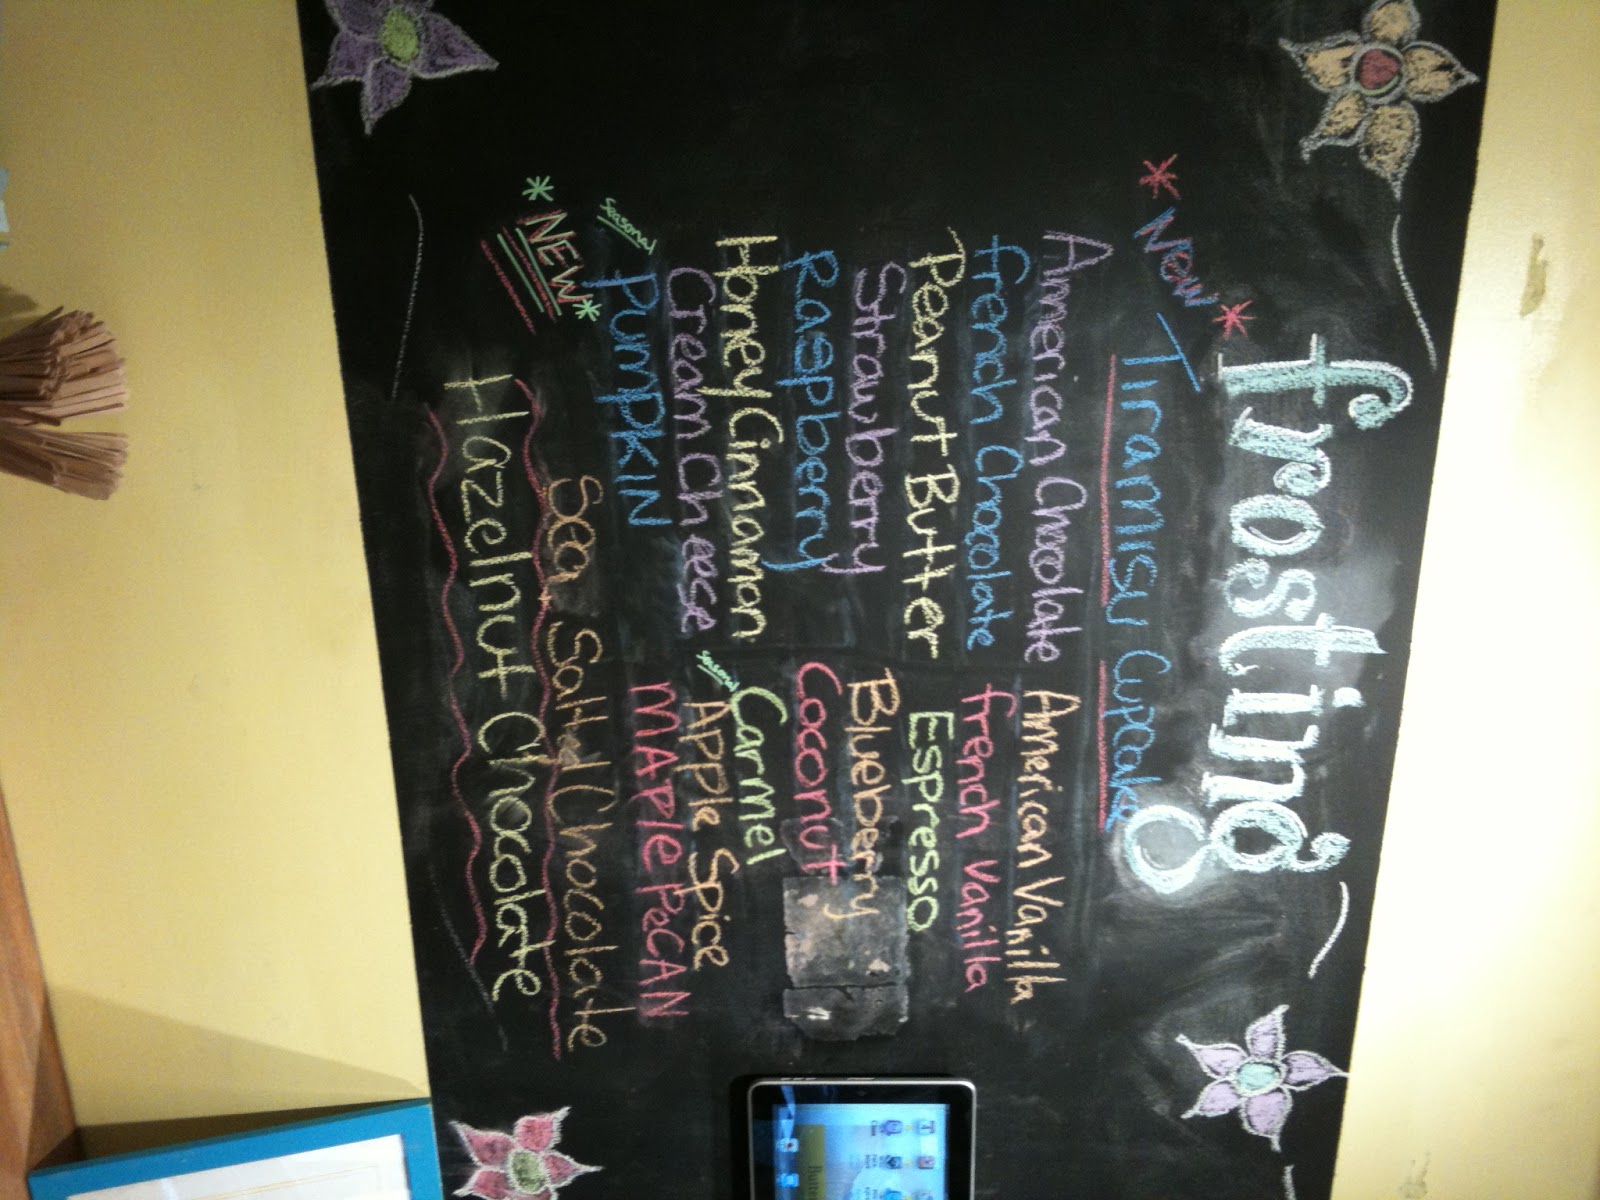 frosting
*New* Tiramisu Cupcake
American Chocolate
French Chocolate
Peanut Butter
Strawberry
Raspberry
Honey Cinnamon
Cream Cheese
Seasonal PUMPKIN
American Vanilla
French Vanilla
Espresso
Blueberry
Coconut
Carmel
Seasonal APPle Spice
MAPle PeCAN
*NEW*
Sea Salted Chocolate
Hazelnut Chocolate